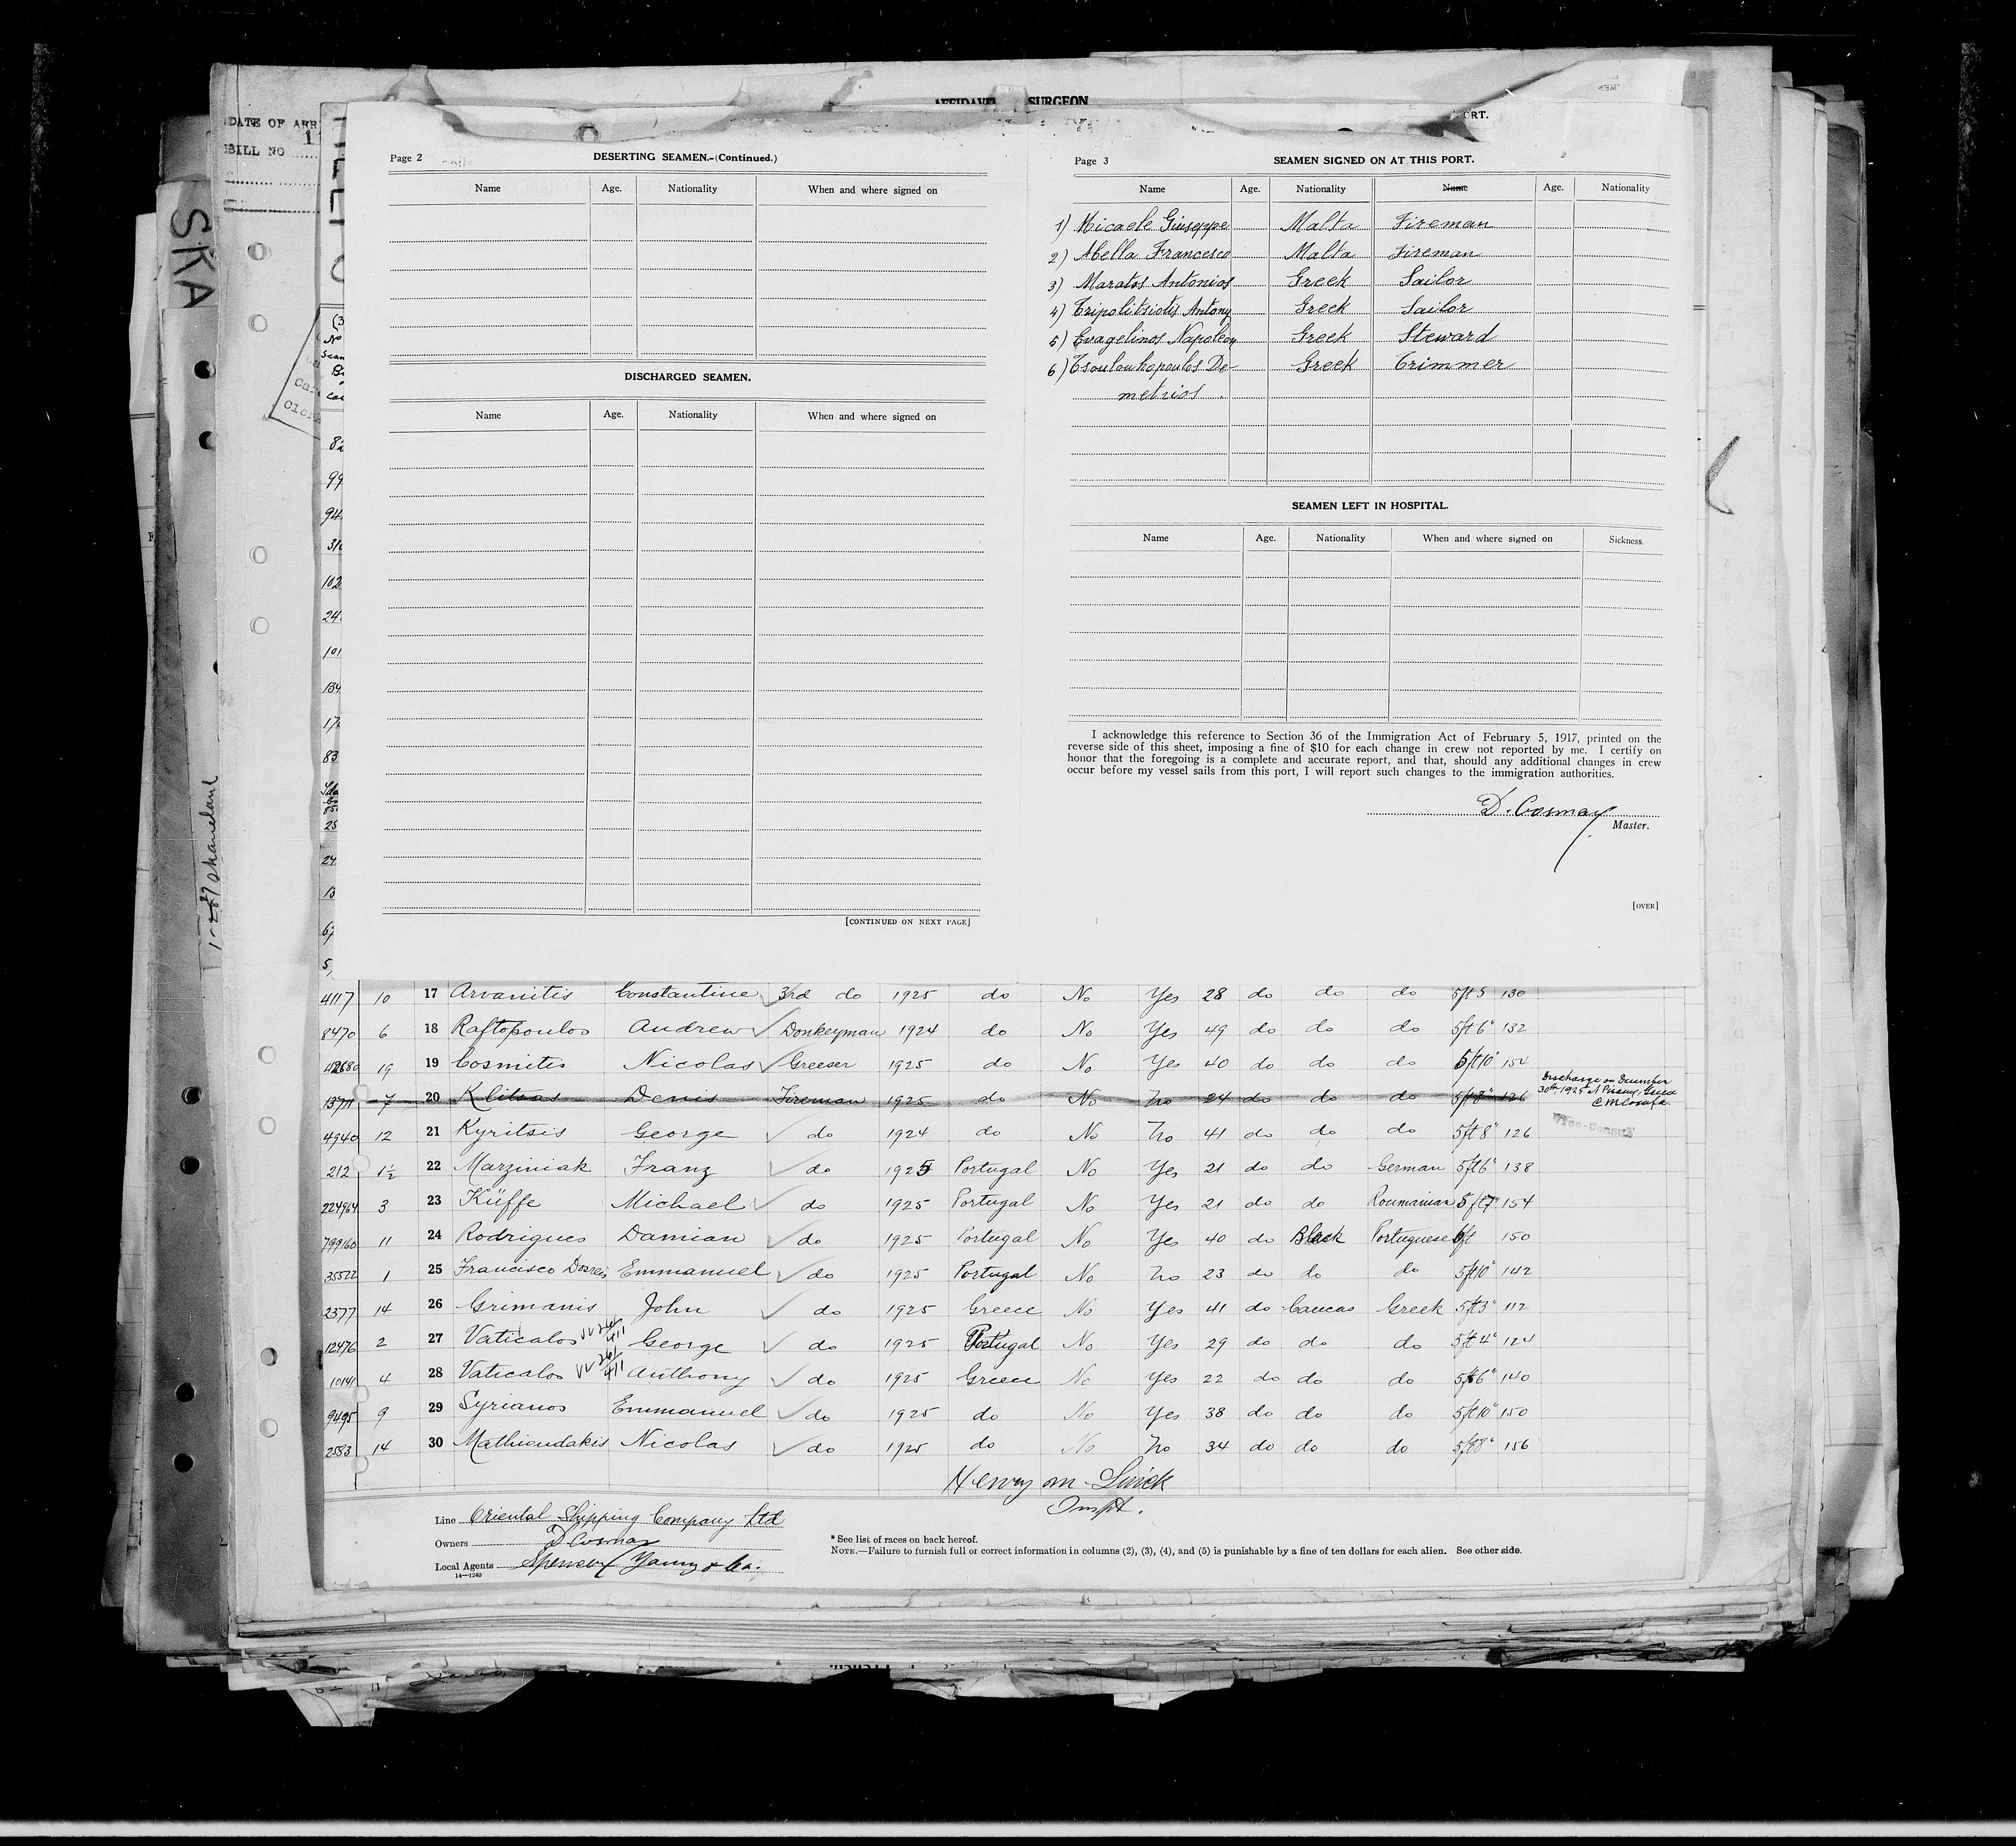 AFFIDAVIT SURGEON
DATE OF ARR
BILL NO
SKA
Page 2
DESERTING SEAMEN.-(Continued.)
Name Age. Nationality When and where signed on
DISCHARGED SEAMEN.
Name Age. Nationality When and where signed on
[CONTINUED ON NEXT PAGE]
Page 3
SEAMEN SIGNED ON AT THIS PORT.
Name Age. Nationality Name Age. Nationality
1) Micaele Giuseppe Malta Fireman
2) Abella Francesco Malta Fireman
3) Maratos Antonios Greek Sailor
4) Tripolitsiotis Antony Greek Sailor
5) Evagelinos Napoleon Greek Steward
6) Tsoulouhopoulos De- Greek Trimmer
metrios
SEAMEN LEFT IN HOSPITAL.
Name Age. Nationality When and where signed on Sickness.
I acknowledge this reference to Section 36 of the Immigration Act of February 5, 1917, printed on the
reverse side of this sheet, imposing a fine of $10 for each change in crew not reported by me. I certify on
honor that the foregoing is a complete and accurate report, and that, should any additional changes in crew
occur before my vessel sails from this port, I will report such changes to the immigration authorities.
D. Cosmas
Master.
[OVER]
4117 10 17 Arvanitis Constantine 3rd do 1925 do No Yes 28 do do do 5ft 5 130
8470 6 18 Raftopoulos Andrew Donkeyman 1924 do No Yes 49 do do do 5ft 6" 132
19 19 Cosmitis Nicolas Greeser 1925 do No Yes 40 do do do 5ft 10" 154
7 20 Klitsas Denis Fireman 1925 do No No 24 do do do 5ft 8" 126
Discharge on December
30th, 1925 at Piraeus, Greece
Vice-Consul
4940 12 21 Kyritsis George do 1924 do No No 41 do do do 5ft 8" 126
212 1½ 22 Marziniak Franz do 1925 Portugal No Yes 21 do do German 5ft 6" 138
224964 3 23 Küffe Michael do 1925 Portugal No Yes 21 do do Roumanian 5ft 7" 154
799160 11 24 Rodrigues Damian do 1925 Portugal No Yes 40 do Black Portuguese 6ft 150
35522 1 25 Francisco Dosreis Emmanuel do 1925 Portugal No No 23 do do do 5ft 10" 142
2377 14 26 Grimanis John do 1925 Greece No Yes 41 do Caucas Greek 5ft 3" 112
12476 2 27 Vaticalos George do 1925 Portugal No Yes 29 do do do 5ft 4" 124
10141 4 28 Vaticalos Anthony do 1925 Greece No Yes 22 do do do 5ft 6" 140
9495 9 29 Syrianos Emmanuel do 1925 do No Yes 38 do do do 5ft 10" 150
2583 14 30 Mathioudakis Nicolas do 1925 do No No 34 do do do 5ft 8" 156
Henry M.
Inspt.
Line Oriental Shipping Company Ltd
Owners D Cosmas
Local Agents Spencer Young & Co.
14—1240
* See list of races on back hereof.
NOTE.—Failure to furnish full or correct information in columns (2), (3), (4), and (5) is punishable by a fine of ten dollars for each alien. See other side.